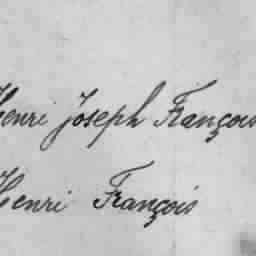 Henri Joseph François
Henri François